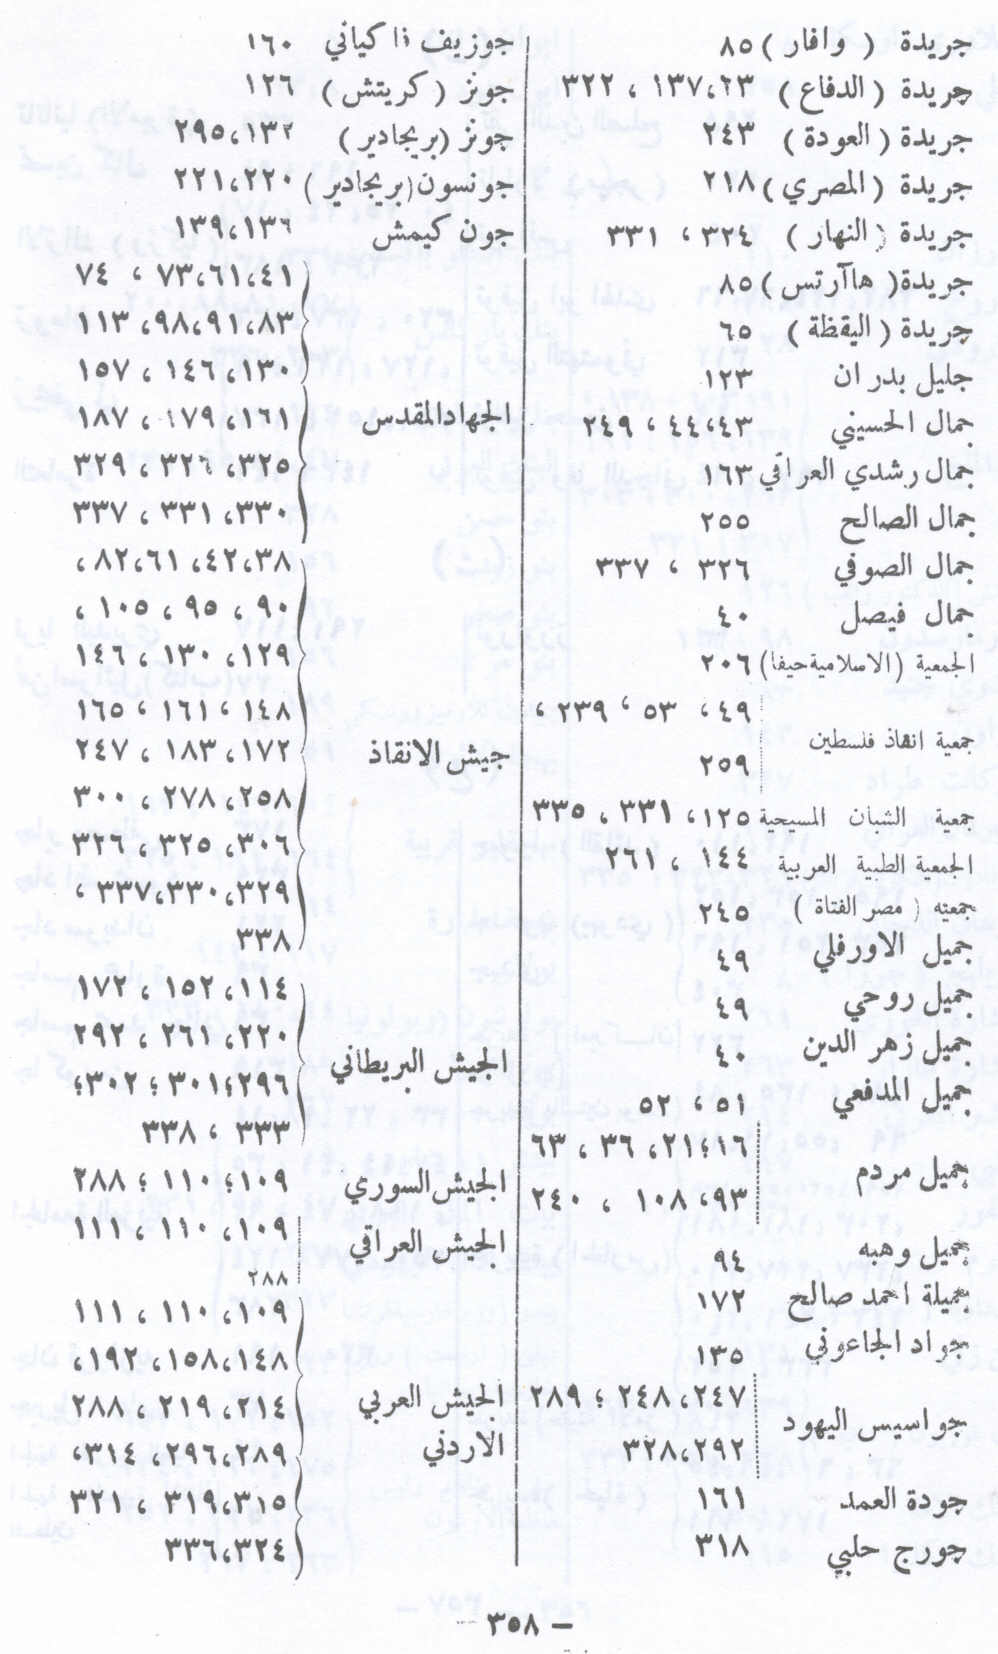 جريدة ( وافار ) ٨٥
جريدة ( الدفاع ) ١٣٧،٢٣ ، ٣٢٢
جريدة ( العودة ) ٢٤٣
جريدة ( المصري ) ٢١٨
جريدة ( النهار ) ٣٢٤ ، ٣٣١
جريدة ( هاآرتس ) ٨٥
جريدة ( اليقظة ) ٦٥
جليل بدران ١٢٣
جمال الحسيني ٤٤،٤٣ ، ٢٤٩
جمال رشدي العراقي ١٦٣
جمال الصالح ٢٥٥
جمال الصوفي ٣٢٦ ، ٣٣٧
جمال فيصل ٤٠
الجمعية (الاسلامية حيفا) ٢٠٦
٤٩، ٥٣ ، ٢٣٩ ،
جمعية انقاذ فلسطين
٢٥٩
جمعية الشبان المسيحية ١٢٥ ، ٣٣١ ، ٣٣٥
الجمعية الطبية العربية ١٤٤ ، ٢٦١
جمعيته ( مصر الفتاة ) ٢٤٥
جميل الاورفلي ٤٩
جميل روحي ٤٩
جميل زهر الدين ٤٠
جميل المدفعي ٥١ ، ٥٢
٢١،١٦ ، ٣٦ ، ٦٣
جميل مردم
٩٣، ١٠٨ ، ٢٤٠
جميل وهبه ٩٤
جميلة احمد صالح ١٧٢
جواد الجاعوني ١٣٥
٢٤٧، ٢٤٨ ؛ ٢٨٩
جواسيس اليهود
٣٢٨،٢٩٢
جودة العمد ١٦١
جورج حلبي ٣١٨
جوزيف ذا كياني ١٦٠
جونز ( كريتش ) ١٢٦
جونز ( بريجادير ) ٢٩٥،١٣٢
جونسون ( بريجادير ) ٢٢١،٢٢٠
جون كيمش ١٣٩،١٣٦
٧٣،٦١،٤١ ، ٧٤
٩٨،٩١،٨٣، ١١٣
١٣٠، ١٤٦ ، ١٥٧
الجهاد المقدس ١٦١، ١٧٩ ، ١٨٧
٣٢٥، ٣٢٦ ، ٣٢٩
٣٣٠، ٣٣١ ، ٣٣٧
٤٢،٣٨، ٨٢،٦١ ،
٩٠ ، ٩٥ ، ١٠٥ ،
١٢٩، ١٣٠ ، ١٤٦
١٤٨ ، ١٦١ ، ١٦٥
جيش الانقاذ ١٧٢، ١٨٣ ، ٢٤٧
٢٥٨، ٢٧٨ ، ٣٠٠
٣٠٦، ٣٢٥ ، ٣٢٦
٣٣٧،٣٣٠،٣٢٩ ،
٣٣٨
١١٤، ١٥٢ ، ١٧٢
٢٢٠، ٢٦١ ، ٢٩٢
الجيش البريطاني ٢٩٦؛٣٠١ ؛ ٣٠٢؛
٣٣٣ ، ٣٣٨
الجيش السوري ١٠٩؛١١٠ ؛ ٢٨٨
الجيش العراقي ١٠٩، ١١٠ ، ١١١
٢٨٨
١٠٩، ١١٠ ، ١١١
١٤٨، ١٥٨ ، ١٩٢،
الجيش العربي ٢١٤، ٢١٩ ، ٢٨٨
الاردني ٢٨٩، ٢٩٦، ٣١٤،
٣١٥، ٣١٩ ، ٣٢١
٣٣٦،٣٢٤
— ٣٥٨ —